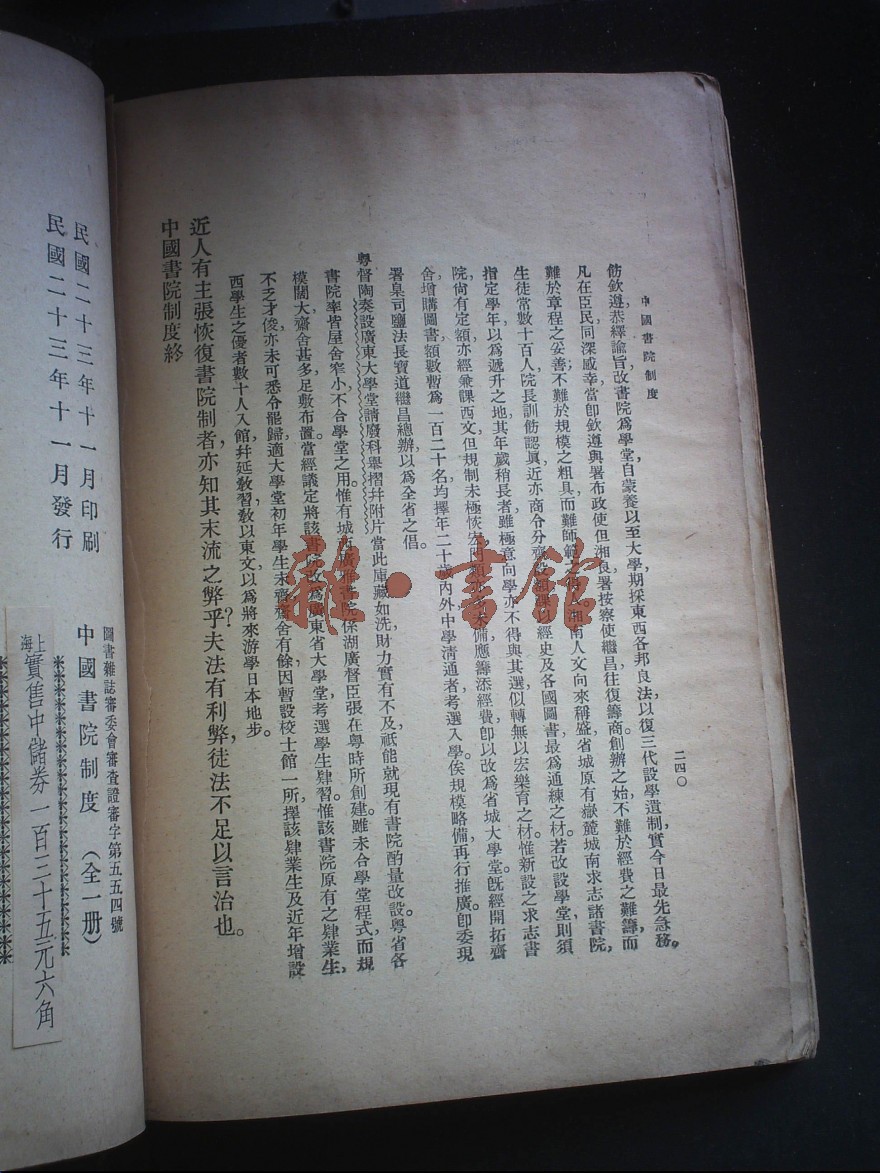 中國書院制度
二四〇
飭欽遵恭繹諭旨改書院爲學堂自蒙養以至大學期採東西各邦良法以復三代設學遺制實今日最先急務。
凡在臣民同深感幸當卽欽遵與署布政使但湘良署按察使繼昌往復籌商創辦之始不難於經費之難籌而
難於章程之妥善不難於規模之粗具而難師範之得人。湘南人文向來稱盛省城原有嶽麓城南求志諸書院,
生徒常數十百人院長訓飭認眞近亦商令分齋設額課以經史及各國圖書最爲通練之材若改設學堂則須
指定學年以爲遞升之地其年歲稍長者雖極意向學亦不得與其選似轉無以宏樂育之材。惟新設之求志書
院尙有定額亦經兼課西文但規制未極恢宏 亦 未備應籌添經費卽以改爲省城大學堂。旣經開拓齋
舍增購圖書額數暫爲一百二十名均擇年二十歲內外中學淸通者考選入學俟規模略備再行推廣卽委現
署臬司鹽法長寶道繼昌總辦以爲全省之倡。
粵督陶奏設廣東大學堂請廢科舉摺幷附片當此庫藏如洗財力實有不及祇能就現有書院酌量改設。粵省各
書院率皆屋舍窄小不合學堂之用。惟有城西廣雅書院係湖廣督臣張在粵時所創建。雖未合學堂程式而規
模闊大齋舍甚多足敷布置。當經議定將該書院改爲廣東省大學堂考選學生肄習。惟該書院原有之肄業生,
不乏才俊亦未可悉令罷歸適大學堂初年學生未齊齋舍有餘因暫設校士館一所擇該肄業生及近年增設
西學生之優者數十人入館幷延敎習敎以東文以爲將來游學日本地步。
近人有主張恢復書院制者亦知其末流之弊乎?夫法有利弊,徒法不足以言治也。
中國書院制度終
民國二十三年十一月印刷
民國二十三年十一月發行
圖書雜誌審委會審查證審字第五五四號
中國書院制度(全一册)
上海實售中儲券一百三十五元六角
雜·書館